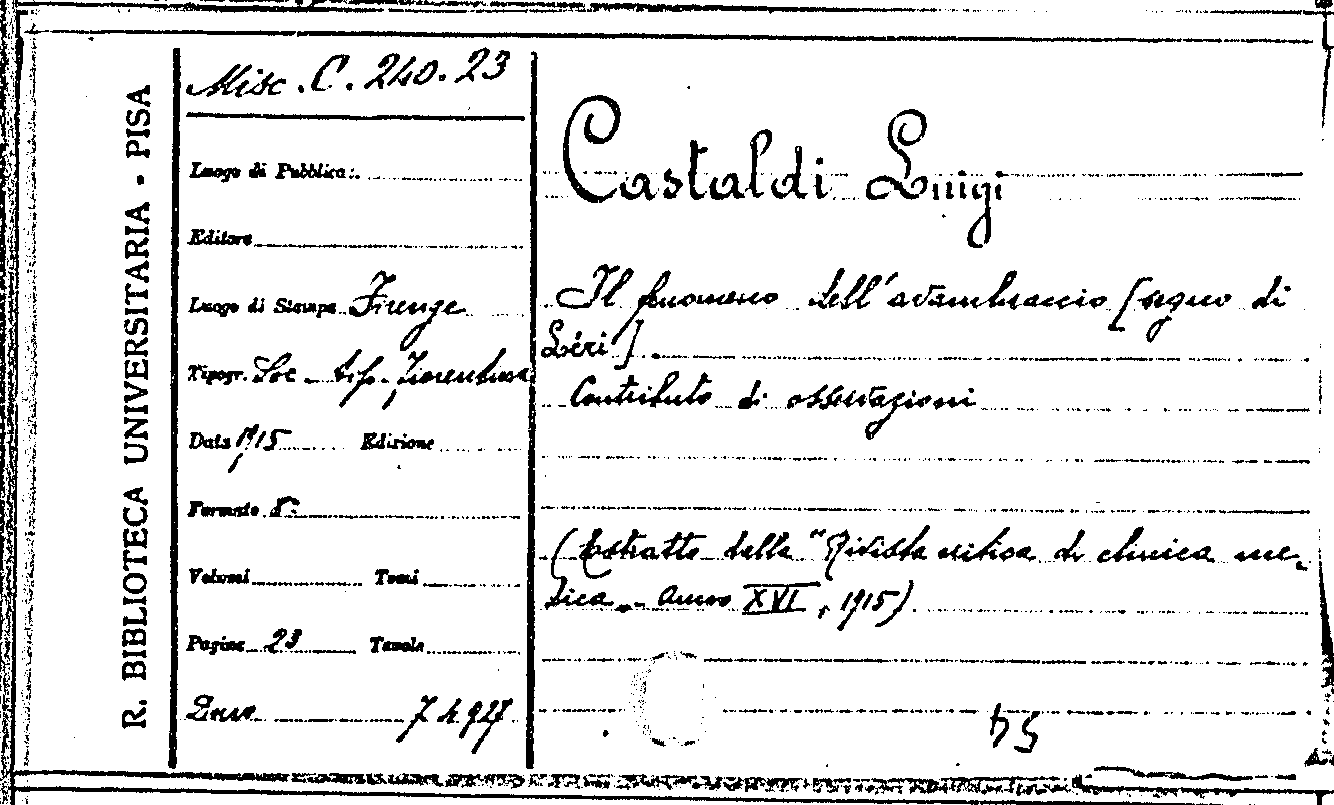 R. BIBLIOTECA UNIVERSITARIA - PISA
Misc. C. 240. 23
Luogo di Pubblica:.
Editore
Luogo di Stampa Firenze
Tipogr. Soc. tip. Fiorentina
Data 1915 Edizione
Formato 8º
Volumi Tomi
Pagine 23 Tavole
Dono
Castaldi Luigi
Il fenomeno dell'avambraccio [segno di
Léri].
Contributo di osservazioni
(Estratto dalla "Rivista critica di clinica me-
dica „ - Anno XVI, 1915)